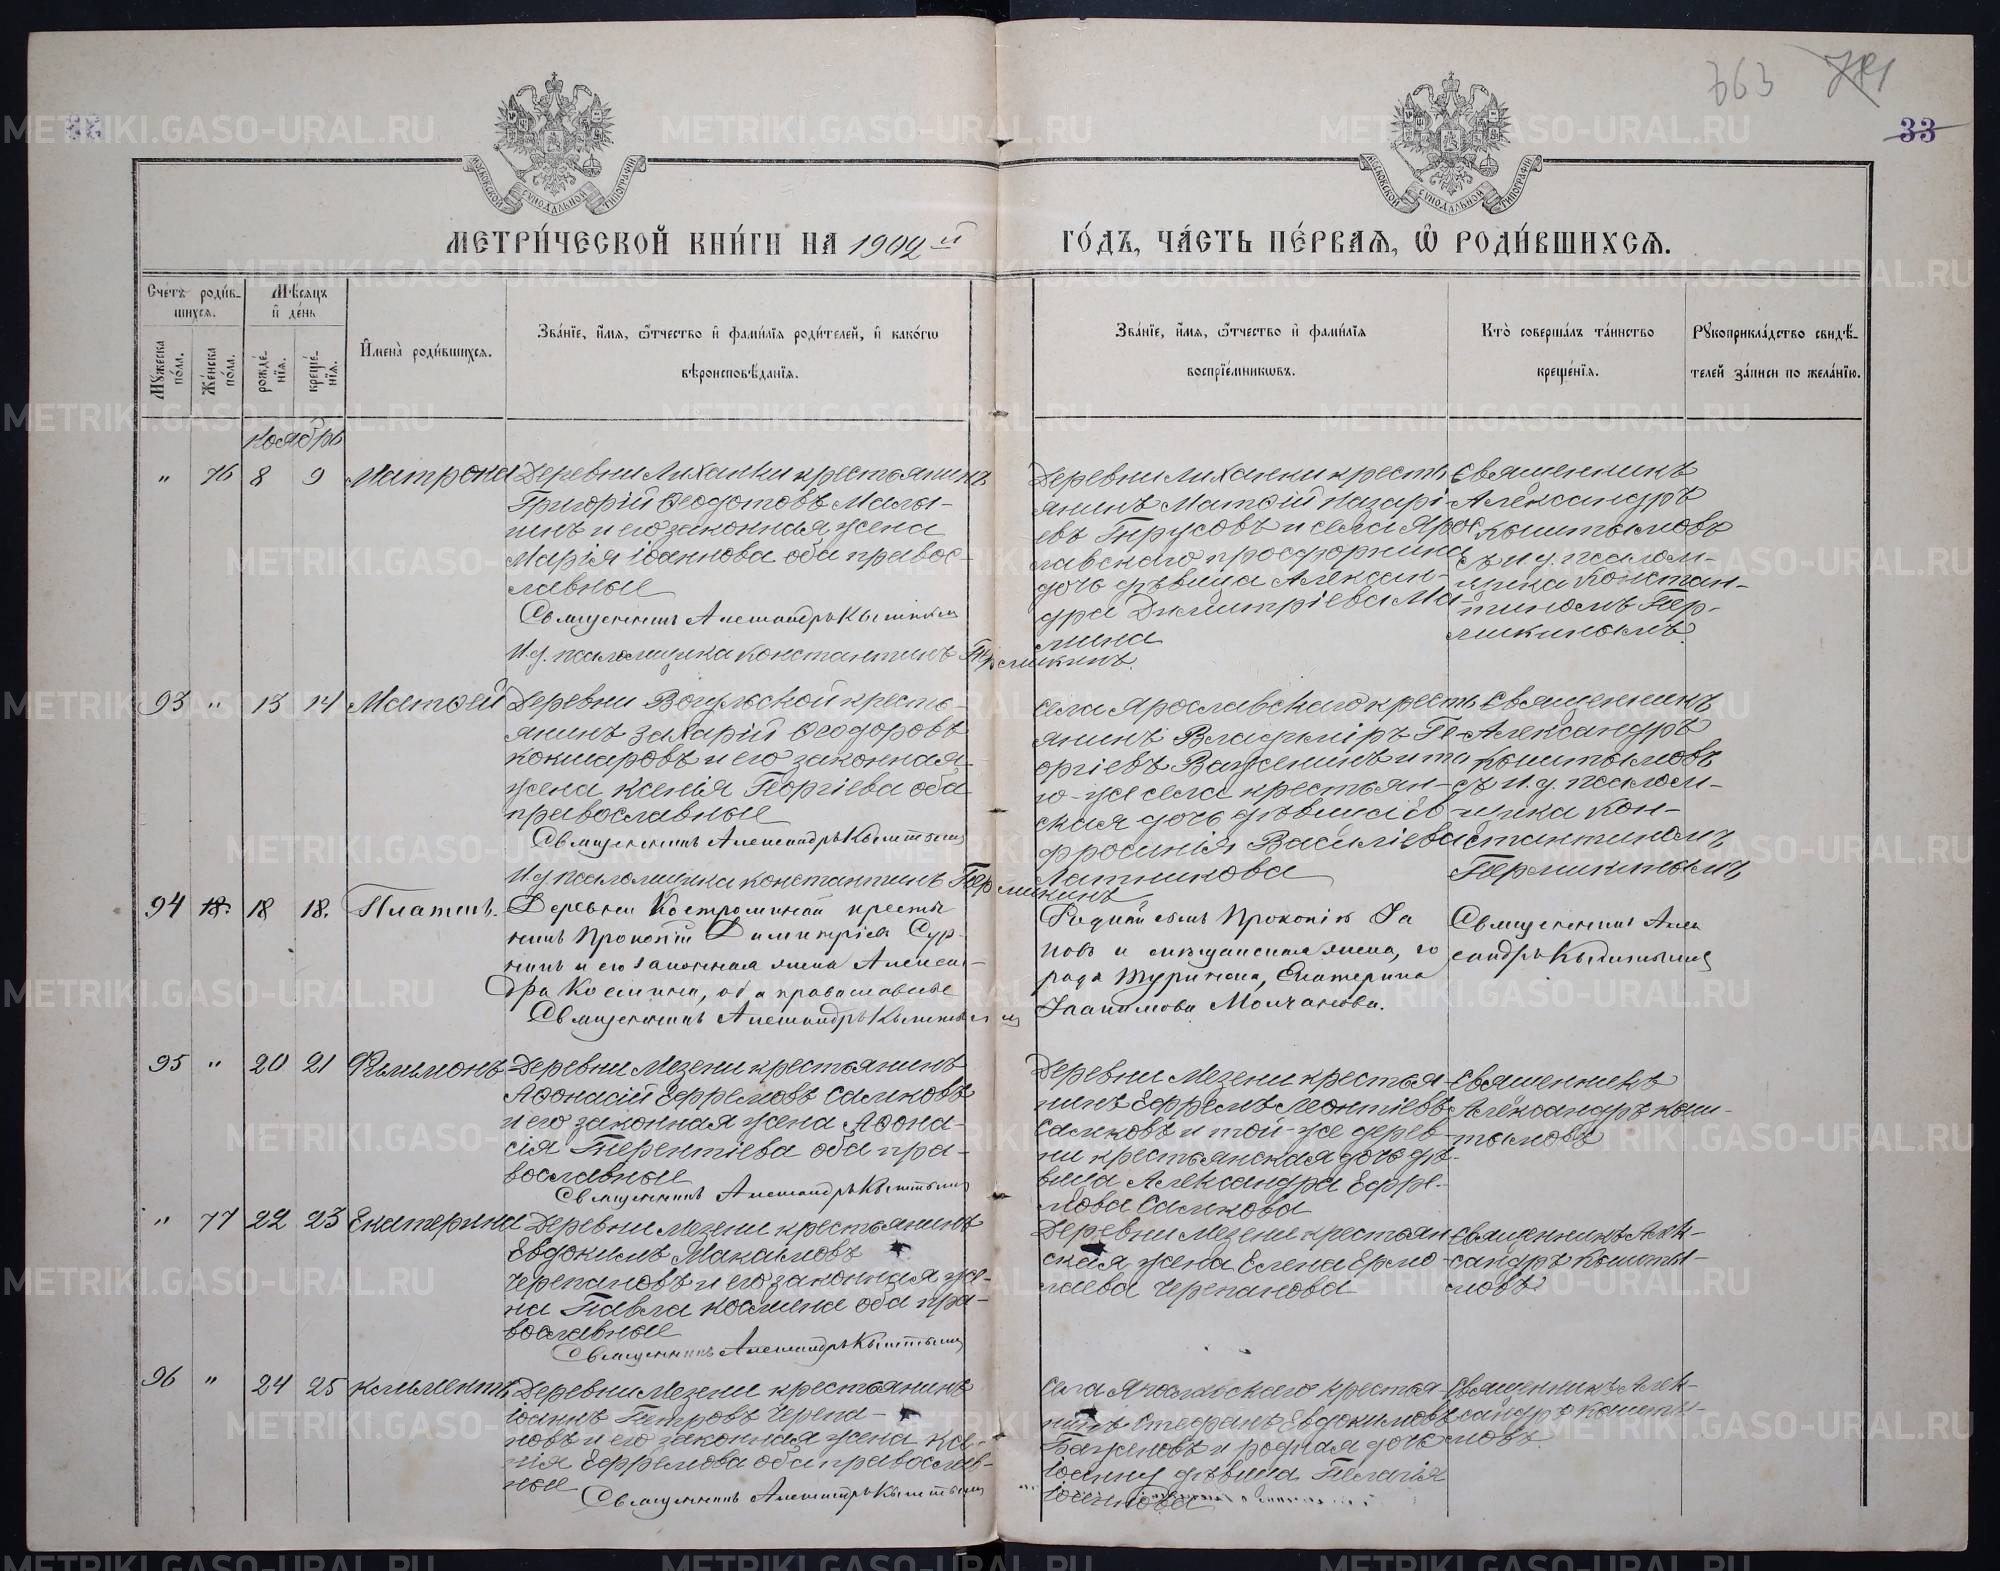 363
33
МОСКОВСКОЙ СУНОДАЛЬНОЙ ТИПОГРАФІИ
МОСКОВСКОЙ СУНОДАЛЬНОЙ ТИПОГРАФІИ
МЕТРИ́ЧЕСКОЙ КНИ́ГИ НА 1902й ГО́ДЪ, ЧА́СТЬ ПЕ́РВАЯ, Ѽ РОДИ́ВШИХСЯ.
Сче́тъ роди́в-
шихся.
Мꙋ́жеска по́ла.
Же́нска по́ла.
Мѣ́сяцъ и҆ де́нь
рожде́нїя.
креще́нїя.
И҆мена̀ роди́вшихся.
Зва́нїе, и҆́мя, ѻ҆́тчество и҆ фами́лїя роди́телей, и҆ како́гѡ
вѣроисповѣ́данїя.
Зва́нїе, и҆́мя, ѻ҆́тчество и҆ фами́лїя
воспрїе́мникѡвъ.
Кто̀ соверша́лъ та́инство
креще́нїя.
Рꙋкоприкла́дство свидѣ́-
телей за́писи по жела́нїю.
Ноябрь
" 76 8 9 Матрона
Деревни Лиханки крестьянинъ
Григорій Ѳеодотовъ Малы-
гинъ и его законная жена
Марія Іоаннова оба правос-
лавные
Священникъ Александръ Кыштымовъ
И.д. псаломщика Константинъ Пермикинъ.
Деревни Лиханки кресть
янинъ Матѳій Назарі-
евъ Трусовъ и села Ярос
лавскаго просфорница
дочь дѣвица Алексан-
дра Димитріева Ма-
мина
Священникъ
Александръ
Кыштымовъ
съ и.д. псалом-
щика Констан-
тиномъ Пер-
микинымъ.
93 " 13 14 Матѳей
Деревни Вогульской кресть-
янинъ Захарій Ѳеодоровъ
Кокшаровъ и его законная
жена Ксенія Георгіева оба
православные
Священникъ Александръ Кыштымовъ
И.д. псаломщика Константинъ Пермикинъ
Села Ярославскаго кресть
янинъ Владиміръ Ге-
оргіевъ Важенинъ и то
го-же села крестьян-
ская дочь дѣвица Ев
фросинія Василіева
Латникова
Священникъ
Александръ
Кыштымовъ
съ и.д. псалом-
щика Кон-
стантиномъ
Пермикинымъ
94 18. 18 18. Платонъ.
Деревни Костроминой кресть
янинъ Прокопій Димитріевъ Сур-
нинъ и его законная жена Алексан-
дра Космина, оба православные
Священникъ Александръ Кыштымовъ
Прокопій
и мѣщанская жена, го
рода Туринска, Екатерина
Іоакимова Молчанова.
Священникъ Алек
сандръ Кыштымовъ
95 " 20 21 Филимонъ
Деревни Мезени крестьянинъ
Аѳонасій Ефремовъ Салковъ
и его законная жена Аѳона-
сія Терентіева оба пра-
вославные
Священникъ Александръ Кыштымовъ
Деревни Мезени крестья-
нинъ Ефремъ Леонтіевъ
Салковъ и той-же дерев-
ни крестьянская дочь дѣ-
вица Александра Ефре-
мова Салкова
Священникъ
Александръ Кыш-
тымовъ
" 77 22 23 Екатерина
Деревни Мезени крестьянинъ
Евдокимъ Макаимовъ
Черепановъ и его законная же-
на Павла Космина оба пра-
вославные
Священникъ Александръ Кыштымовъ
Деревни Мезени крестьян
ская жена Елена Ермо-
лаева Черепанова
Священникъ Алек-
сандръ Кышты-
мовъ
96 " 24 25 Климентъ
Деревни Мезени крестьянинъ
Іоаннъ Петровъ Черепа-
новъ и его законная жена Ксе-
нія Ефремова оба православ-
ные
Священникъ Александръ Кыштымовъ
Села Ярославскаго крестья-
нинъ Стефанъ Евдокимовъ
Баженовъ и родная дочь
Іоанну дѣвица Пелагія
Іоаннова
Священникъ Алек-
сандръ Кышты-
мовъ.
METRIKI.GASO-URAL.RU